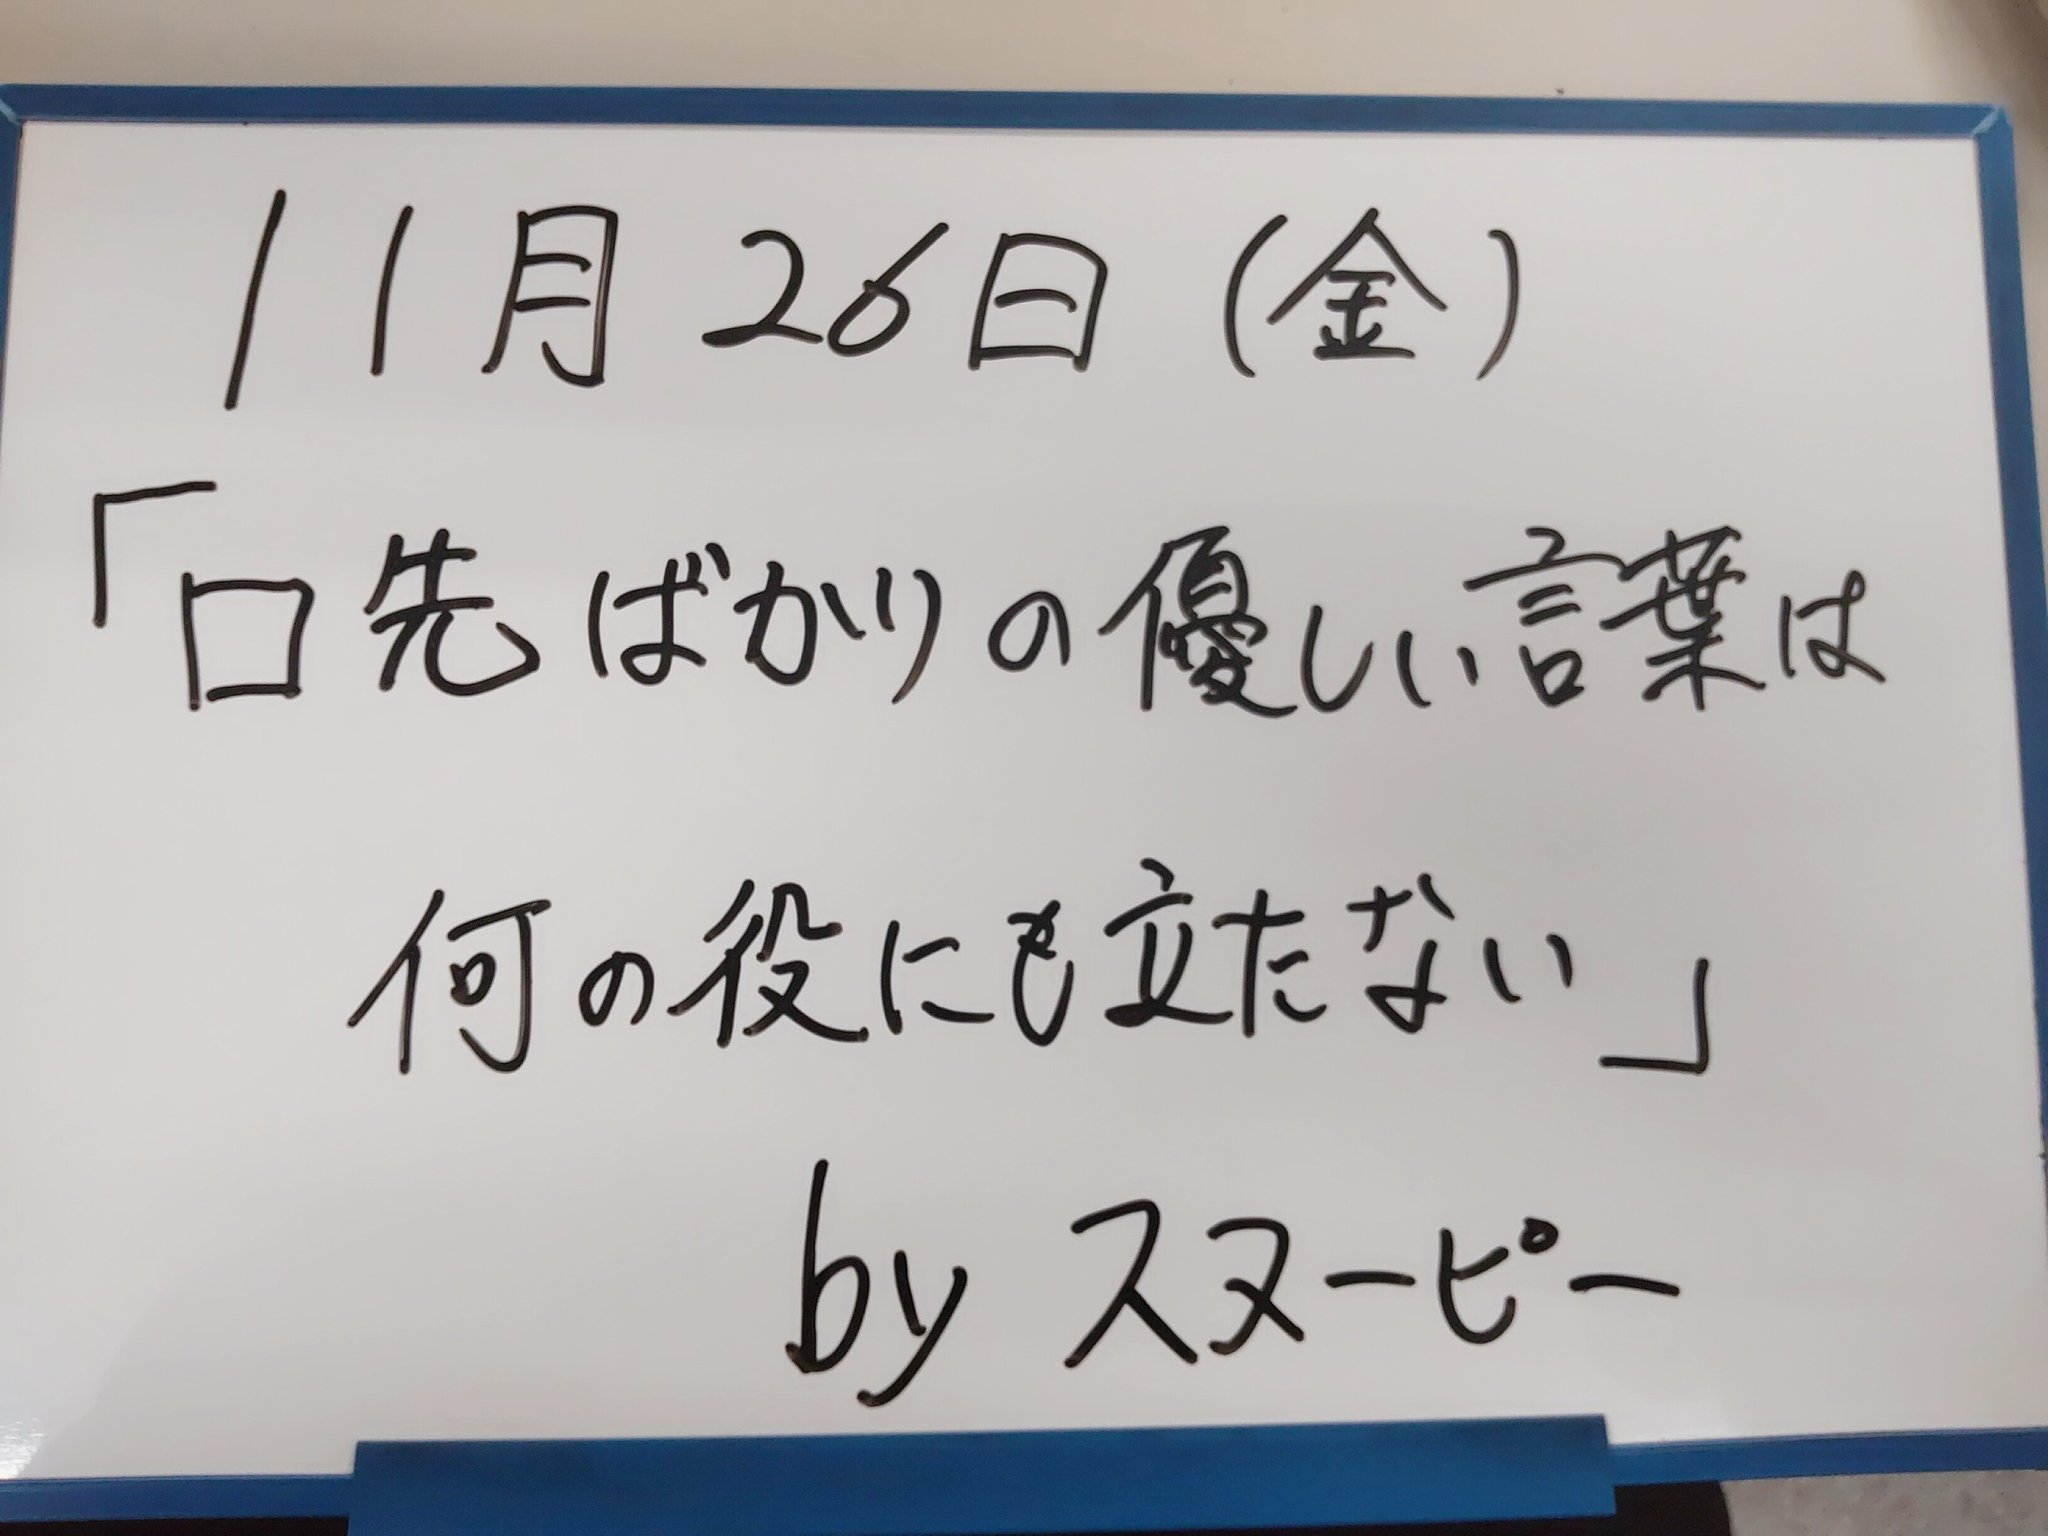 11月26日(金)
「口先ばかりの優しい言葉は
何の役にも立たない」
by スヌーピー